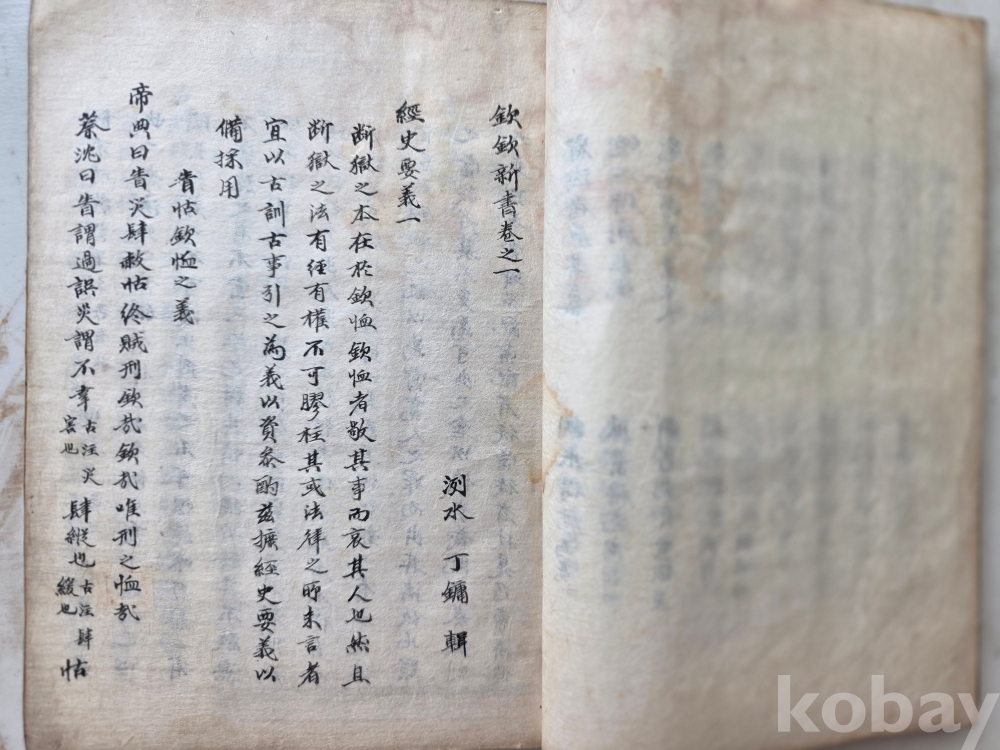 欽欽新書卷之一
洌水 丁鏞 輯
經史要義一
斷獄之本在於欽恤欽恤者敬其事而哀其人也然且
斷獄之法有經有權不可膠柱其或法律之所未言者
宜以古訓古事引之為義以資參酌玆摭經史要義以
備採用
眚怙欽恤之義
帝典曰眚災肆赦怙終賊刑欽哉欽哉唯刑之恤哉
蔡沈曰眚謂過誤災謂不幸古注災害也肆縱也古注肆緩也怙
kobay